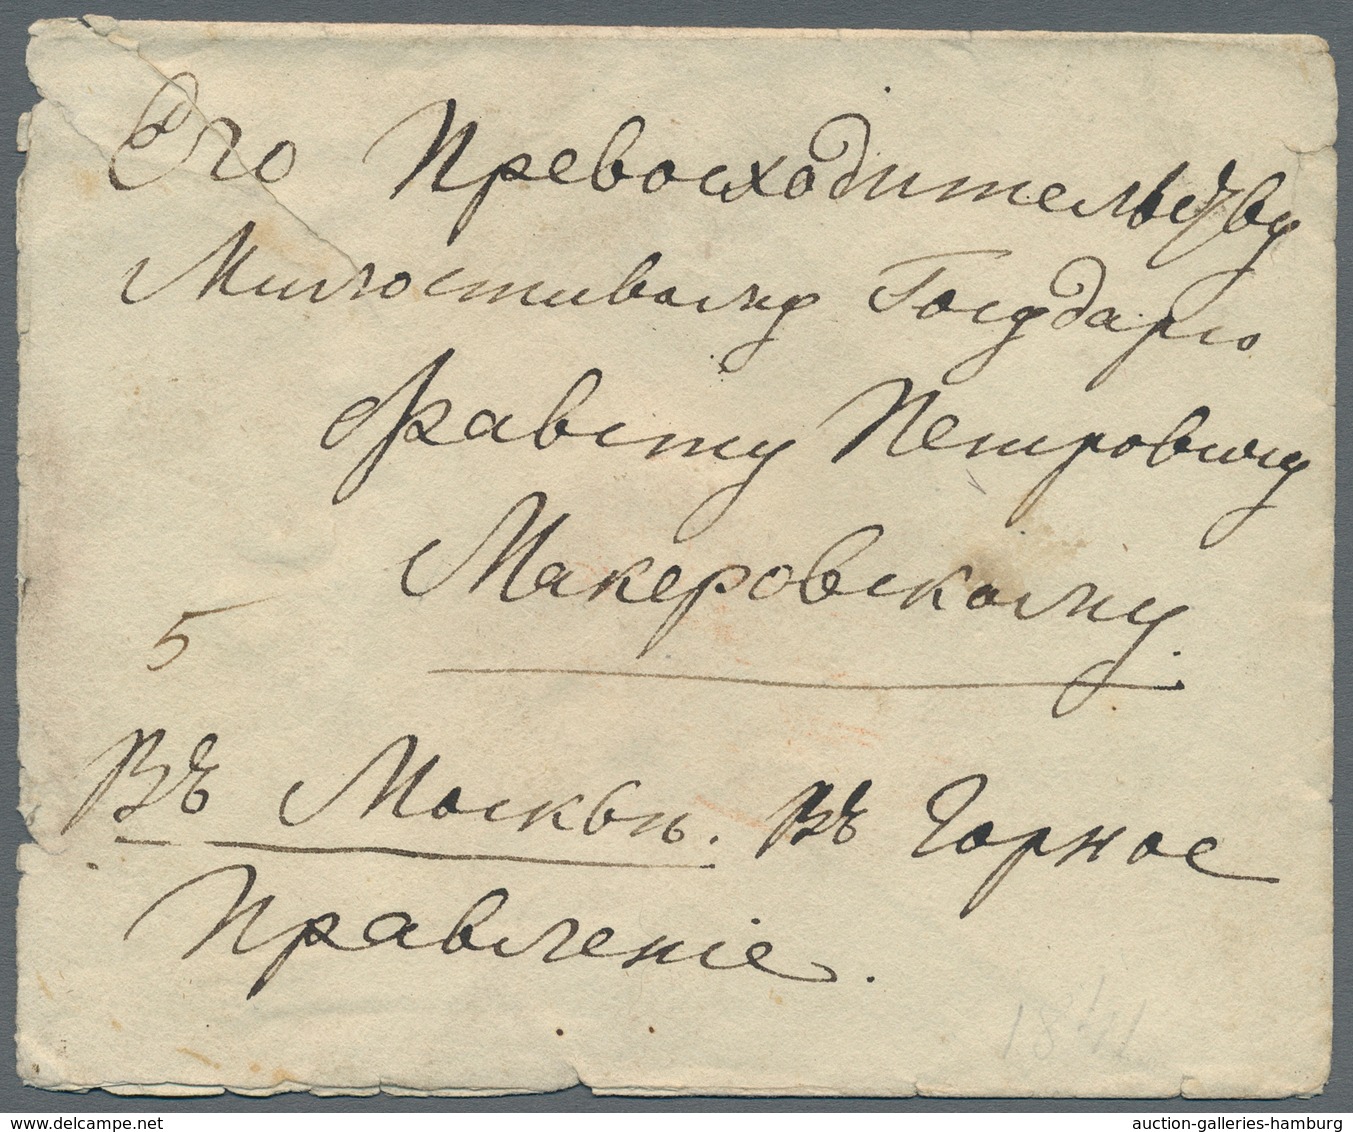 Его Превосходительству
Милостивому Государю
Фавсту Петровичу
Макеровскому.
5
Въ Москвѣ. Въ Горное
Правленіе.
auction-galleries-hamburg